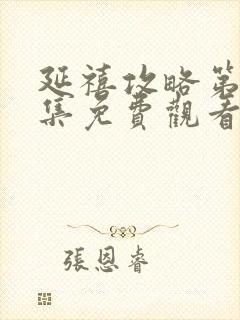 延禧攻略第
集免費觀看
張恩睿